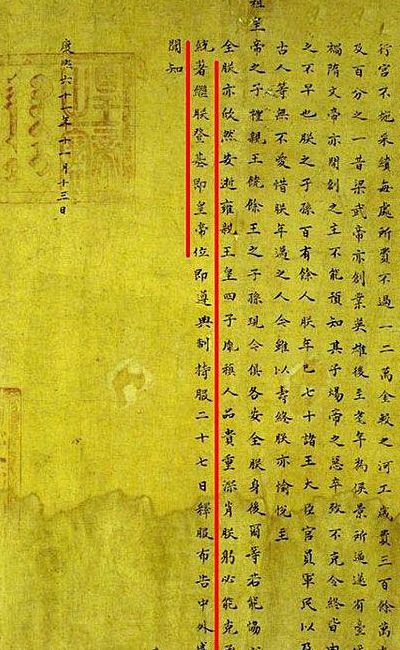 行宮不施采繢每處所費不過一二萬金較之河工歲費三百餘萬
及百分之一昔梁武帝亦創業英雄後至老年為侯景所逼遂有臺城
禍隋文帝亦開創之主不能預知其子煬帝之惡卒致不克令終皆由
之不早也朕之子孫百有餘人朕年已七十諸王大臣官員軍民以及
古人等無不愛惜朕年邁之人今雖以壽終朕亦愉悅至
祖皇帝之子禮親王饒餘王之子孫現今俱各安全朕身後爾等若能協
全朕亦欣然安逝雍親王皇四子胤禛人品貴重深肖朕躬必能克承
統著繼朕登基即皇帝位即遵典制持服二十七日釋服布告中外咸
聞知
康熙六十一年十一月十三日